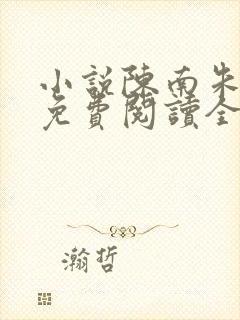 小説陳南朱
免費閱讀全
瀚哲